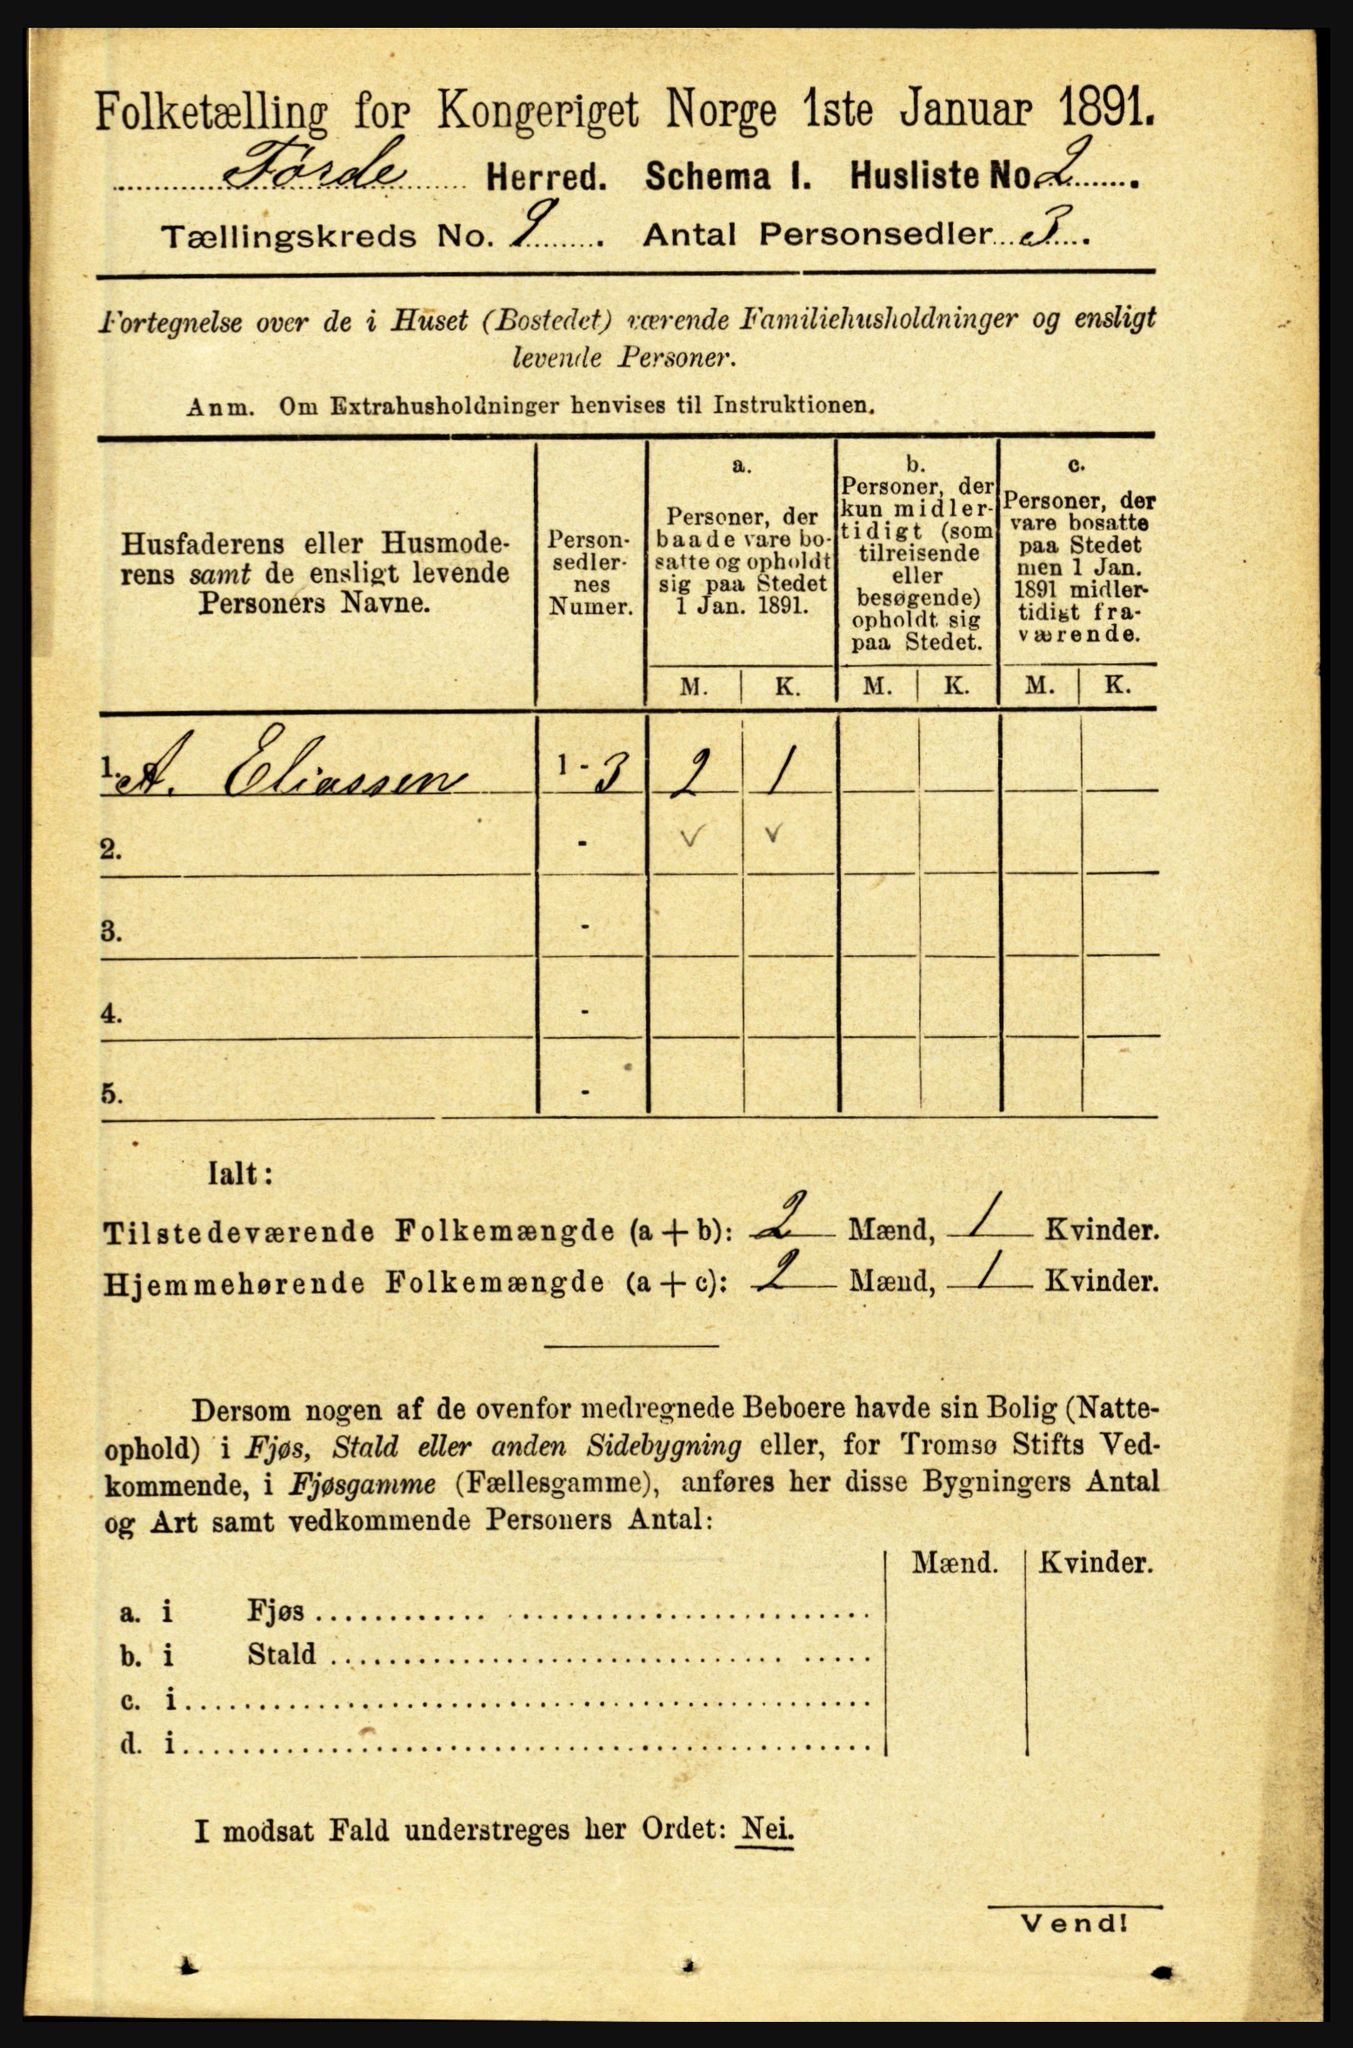 Folketælling for Kongeriget Norge 1ste Januar 1891.
Førde Herred. Schema I. Husliste No. 2.
Tællingskreds No. 2. Antal Personsedler 3.
Fortegnelse over de i Huset (Bostedet) værende Familiehusholdninger og ensligt
levende Personer.
Anm. Om Extrahusholdninger henvises til Instruktionen.
Husfaderens eller Husmode-
rens samt de ensligt levende
Personers Navne.
Person-
sedler-
nes
Numer.
a.
Personer, der
baade vare bo-
satte og opholdt
sig paa Stedet
1 Jan. 1891.
b.
Personer, der
kun midler-
tidigt (som
tilreisende
eller
besøgende)
opholdt sig
paa Stedet.
c.
Personer, der
vare bosatte
paa Stedet
men 1 Jan.
1891 midler-
tidigt fra-
værende.
M. K. M. K. M. K.
1. A. Eliassen 1 - 3 2 1
2. - v v
3. -
4. -
5. -
Ialt:
Tilstedeværende Folkemængde (a + b): 2 Mænd, 1 Kvinder.
Hjemmehørende Folkemængde (a + c): 2 Mænd, 1 Kvinder.
Dersom nogen af de ovenfor medregnede Beboere havde sin Bolig (Natte-
ophold) i Fjøs, Stald eller anden Sidebygning eller, for Tromsø Stifts Ved-
kommende, i Fjøsgamme (Fællesgamme), anføres her disse Bygningers Antal
og Art samt vedkommende Personers Antal:
Mænd. Kvinder.
a. i Fjøs
b. i Stald
c. i
d. i
I modsat Fald understreges her Ordet: Nei.
Vend!